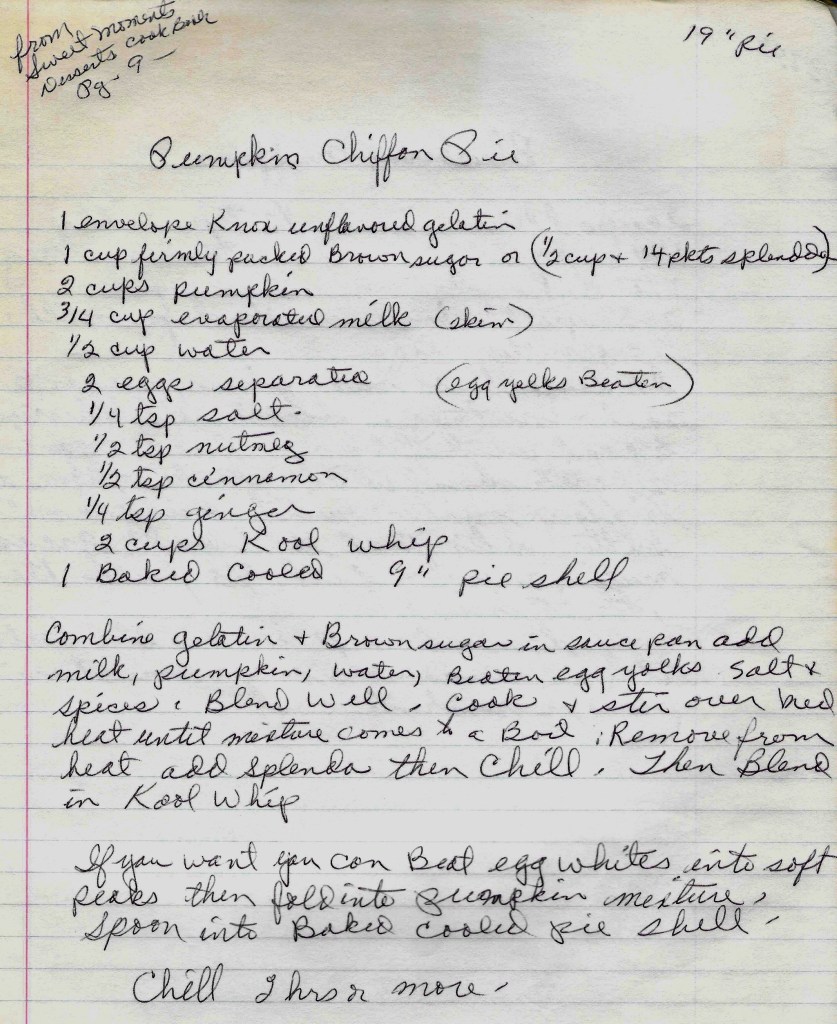 from
Sweet Moments
Desserts Cook Book
Pg - 9 -
1 9" Pie
Pumpkin Chiffon Pie
1 envelope Knox unflavored gelatin
1 cup firmly packed Brown sugar or (1/2 cup + 14 pkts splenda)
2 cups pumpkin
3/4 cup evaporated milk (skim)
1/2 cup water
2 eggs separated (egg yolks Beaten)
1/4 tsp salt.
1/2 tsp nutmeg
1/2 tsp cinnamon
1/4 tsp ginger
2 cups Kool whip
1 Baked Cooled 9" pie shell
Combine gelatin + Brown sugar in sauce pan add
milk, pumpkin, water, Beaten egg yolks Salt +
spices. Blend Well. Cook + stir over med
heat until mixture comes to a Boil. Remove from
heat add splenda then Chill. Then Blend
in Kool Whip
If you want you can Beat egg whites into soft
peaks then fold into pumpkin mixture,
Spoon into Baked Cooled pie shell.
Chill 2 hrs or more.